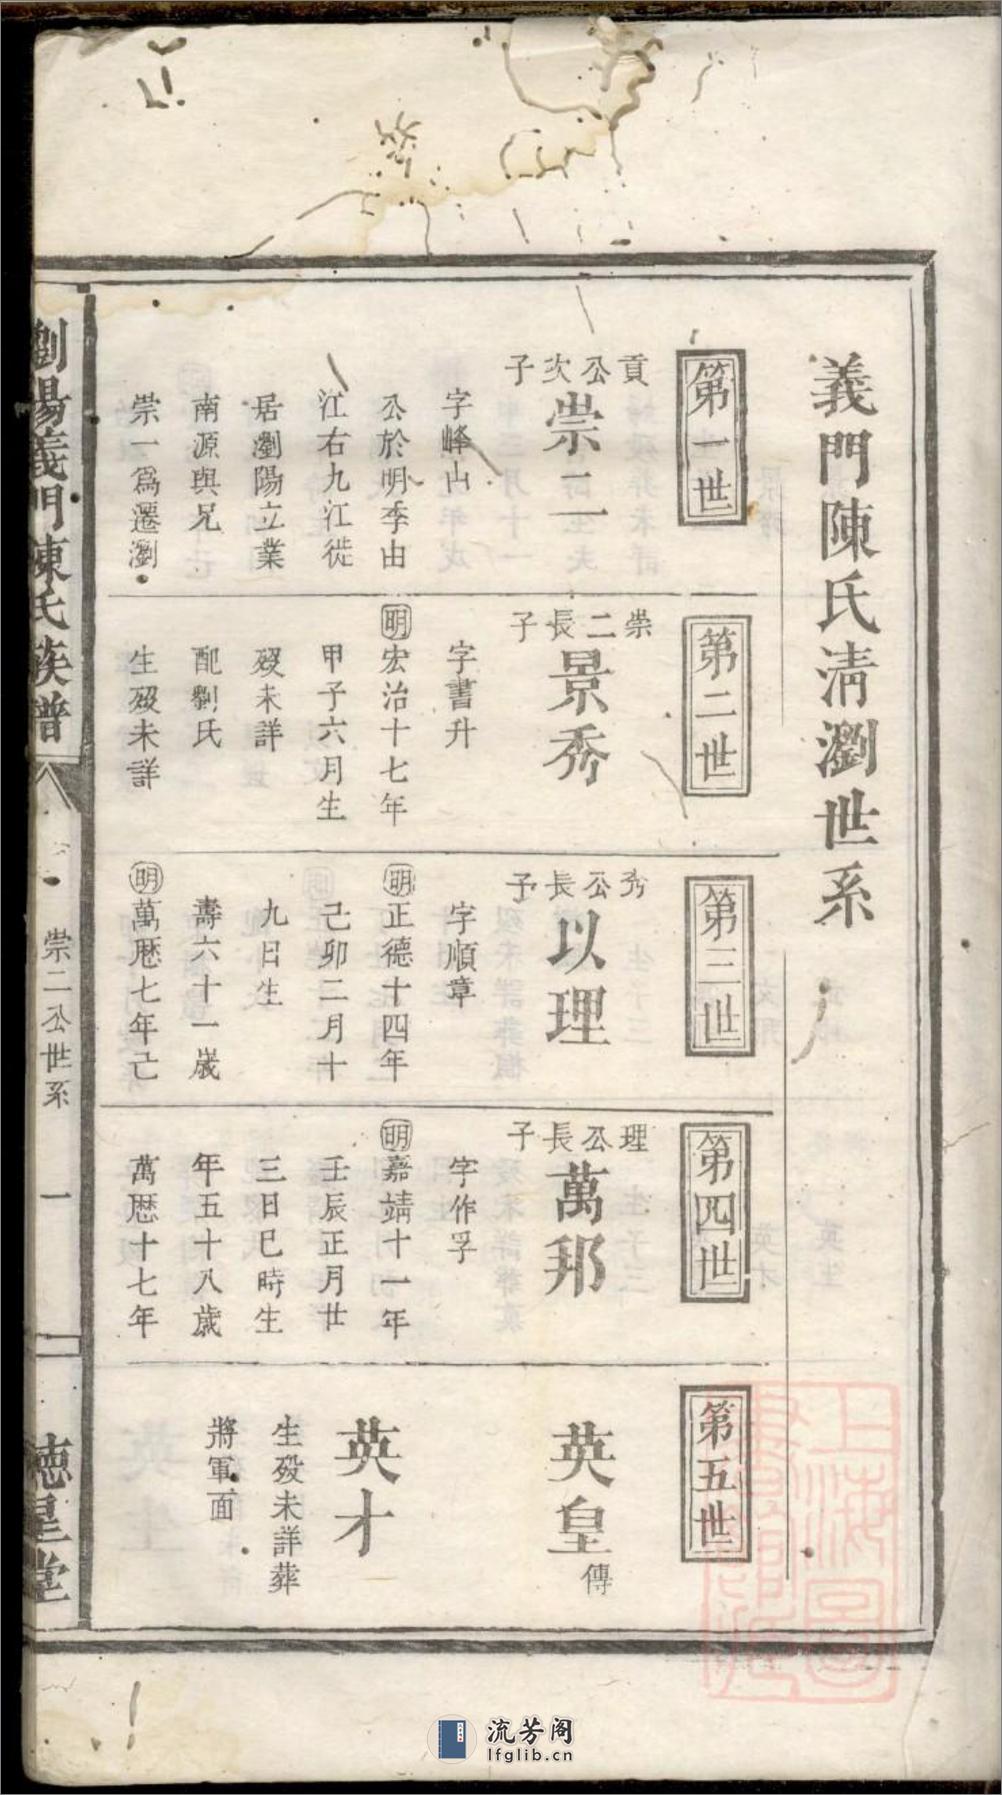 義門陳氏清瀏世系
第一世
貢公次子
崇二
字峰山
公於明季由
江右九江徙
居瀏陽立業
南源與兄
崇一爲遷瀏
第二世
崇二長子
景秀
字書升
明宏治十七年
甲子六月生
歿未詳
配劉氏
生歿未詳
第三世
秀公長子
以理
字順章
明正德十四年
己卯二月十
九日生
壽六十一歲
明萬歷七年己
第四世
理公長子
萬邦
字作孚
明嘉靖十一年
壬辰正月廿
三日巳時生
年五十八歲
萬歷十七年
第五世
英皇傳
英才
生歿未詳葬
將軍面
瀏陽義門陳氏族譜
崇二公世系
一
德星堂
上海圖
書館藏
流芳阁
lfglib.cn